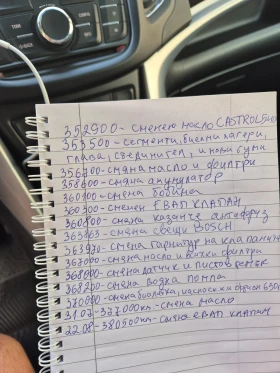 352900 - сменено масло CASTROL 5W40
353500 - сегменти, биелни лагери,
глава, съединител, и нови гуми
356700 - смяна масло и филтри
358600 - смяна акумулатор
360100 - смяна бобина
360300 - сменен ЕВАП КЛАПАН
360800 - смяна казанче антифриз
363863 - смяна свещи BOSCH
363930 - смяна гарнитур на кла
367000 - смяна масло и всички филтри
368000 - смяна датчик и пистов ремък
368200 - смяна водна помпа
370000 - смяна
31.07 - 377000км - смяна масло
22.08 - 380500км - смяна ЕВАП КЛАПАН